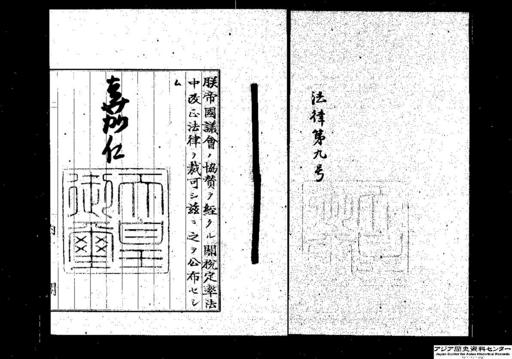 法律第九号
朕帝國議會ノ協贊ヲ經タル關税定率法
中改正法律ヲ裁可シ茲ニ之ヲ公布セシ
ム
嘉仁
天皇
御璽
アジア歴史資料センター
Japan Center for Asian Historical Records